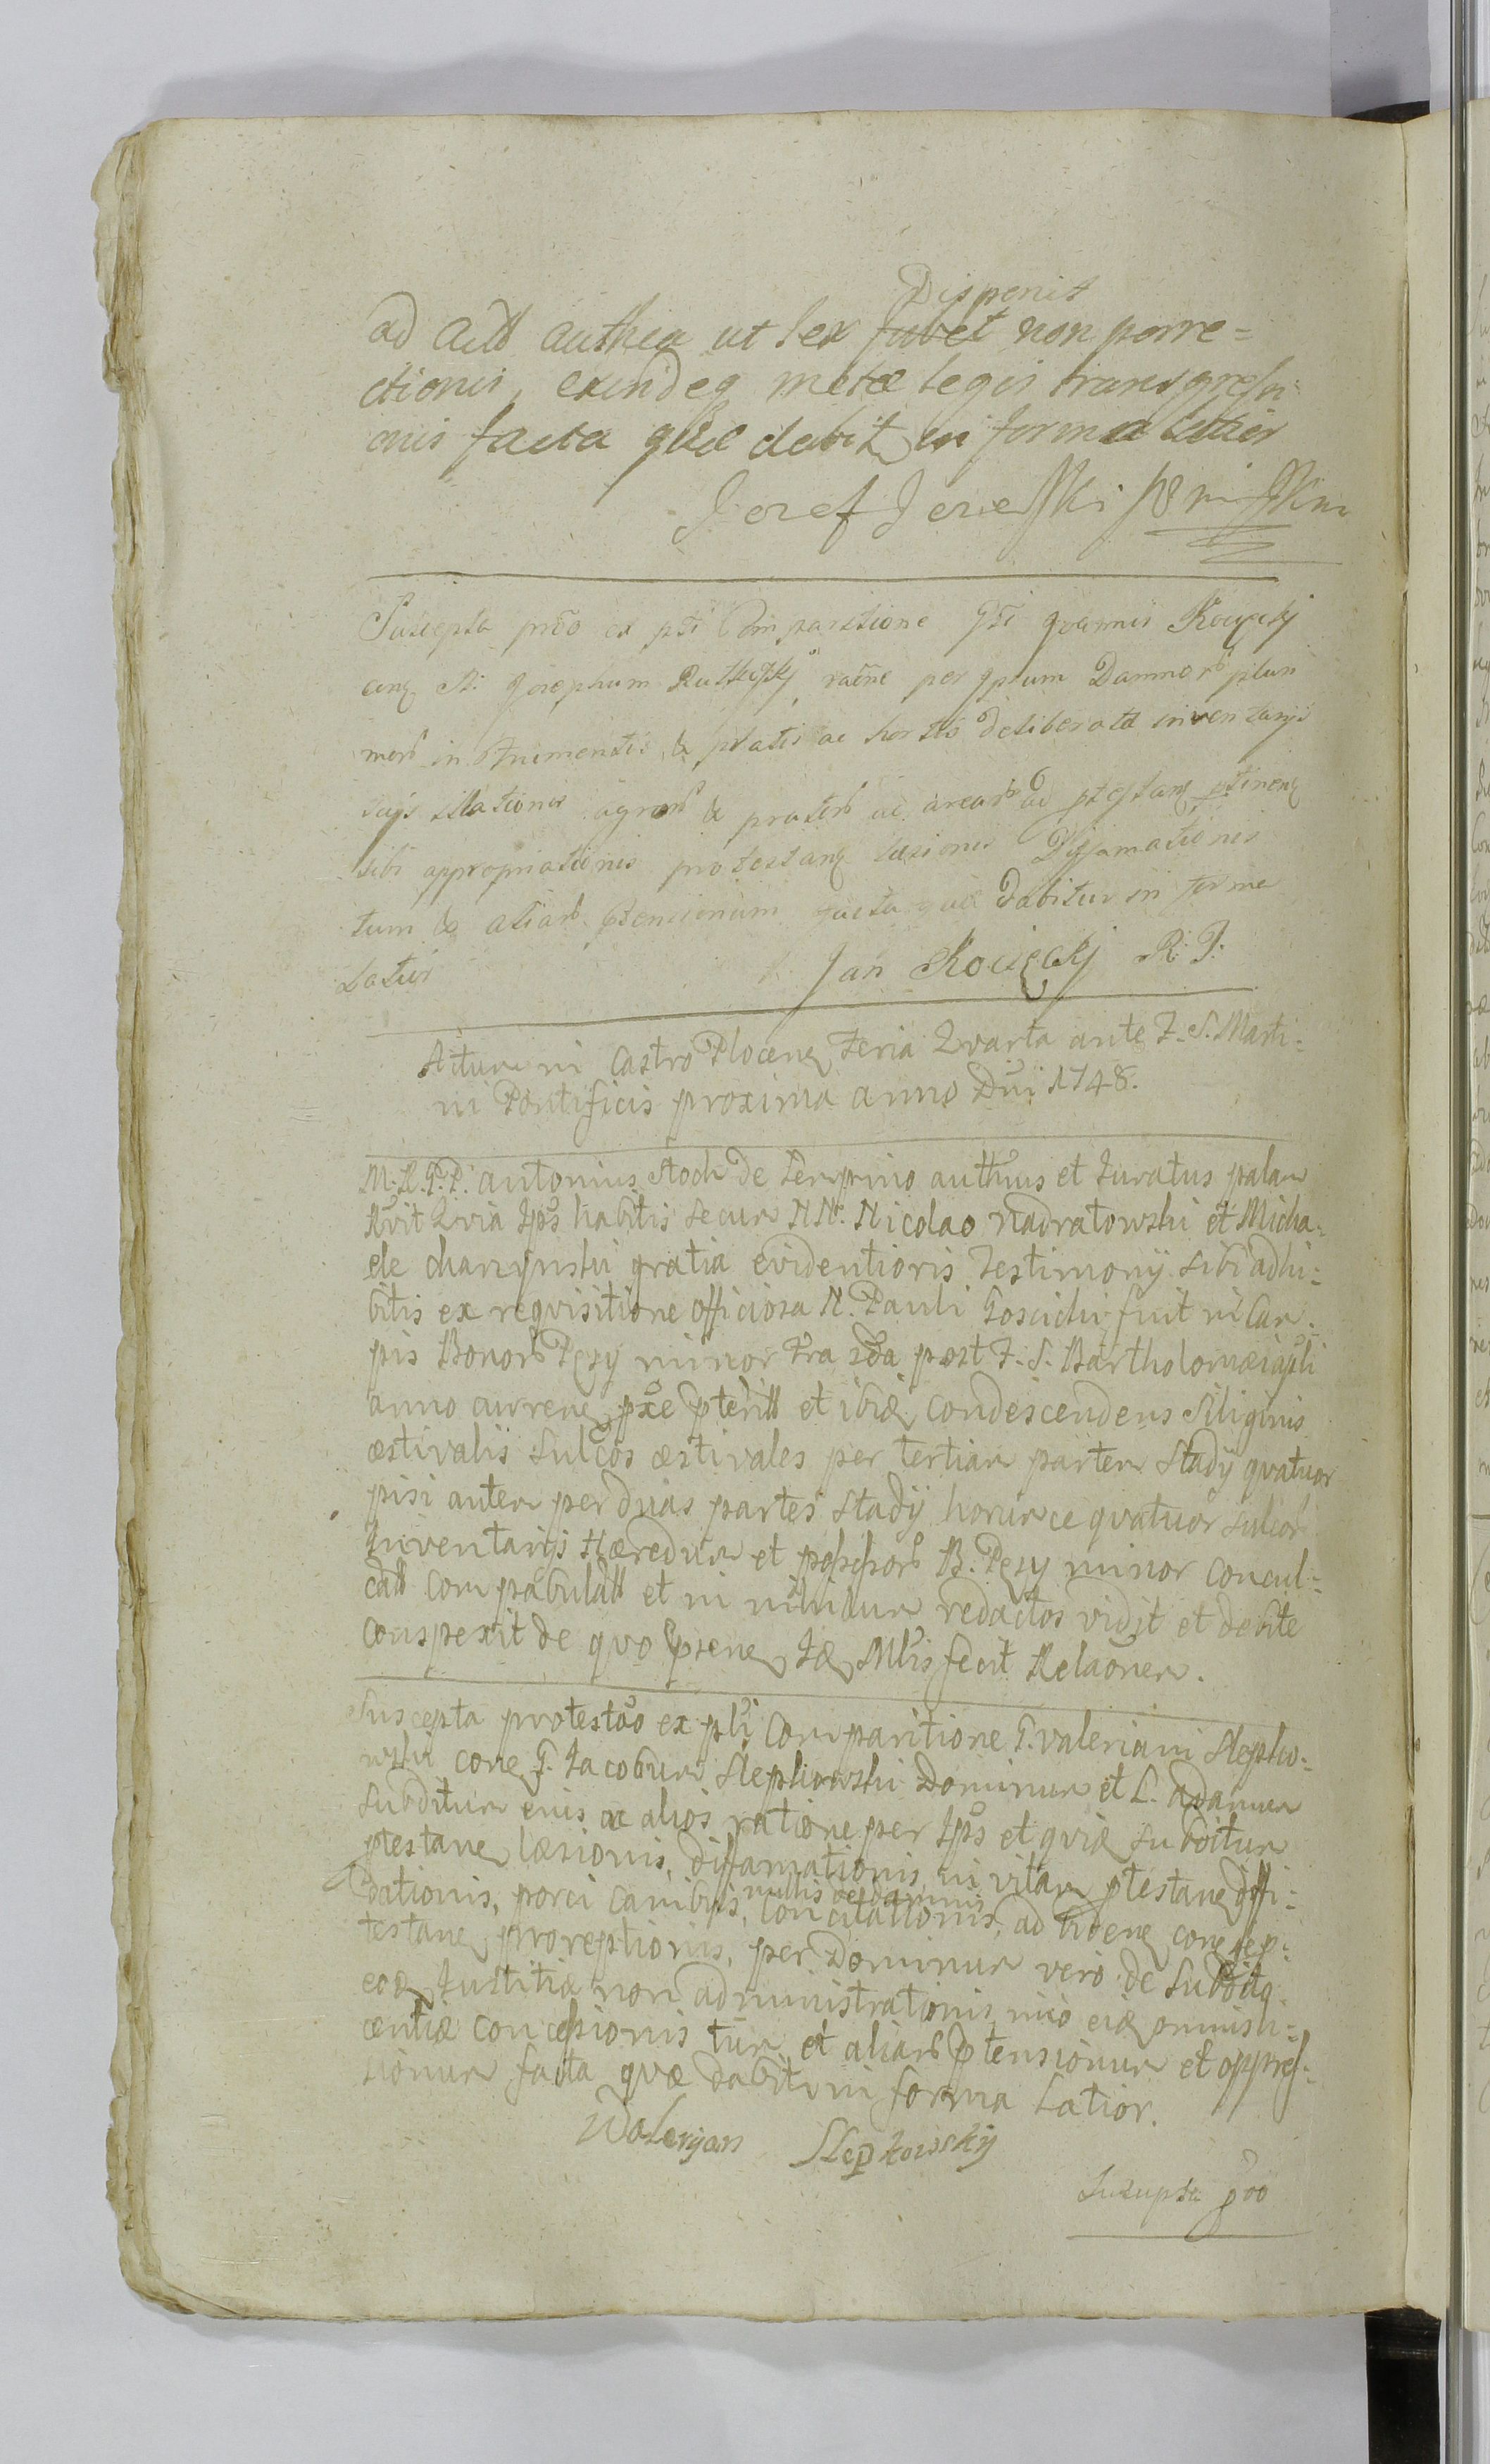 Disponit
ad acta authen ut lex jubet non porre=
ctionis, exindeq metæ legis transgressi
onis facta quæ dabit in forma latior
Jozef
Suscepta prõo ex pti Comparitione Gsi Joannis Kocięckj
conq N: Josephum Rutkoskj raõne per Ipsum Damnor pluri
mor in frumentis & pratis ac hortis deliberate inventarijs
suijs illationis agror & prator ac arear ac ptestanq ptinenq
sibi appropriationis protestanq læsionis Diffamationis
tum & aliar ptensionum facta quæ dabitur in forma
Latiur
Jan Kocięckj R: P:
Actum in Castro Plocenq Feria Qvarta ante F. S. Marti=
ni Pontificis proxima anno Dni 1748.
M. R. P. P. antonius Stoch de Serpino authus et Juratus palam
Rvit Qvia Ips habitis secum NN. Nicolao Nadratowski et Micha=
ele charzynski gratia evidentioris Testimonij sibi adhi=
bitis ex reqvisitione officiosa N. Pauli Gościcki fuit in Cam=
pis Bonor Pęsy minor Fra 2da post F. S. Bartholomæi apli
anno currenq pxe pterit et ibiq condescendens Siliginis
æstivalis Sulcos æstivales per tertiam partem Stadij qvatuor
pisi autem per duas partes Stadij horumce qvatuor sulcor
Inventarijs Hæredum et possessor B. Pęsy minor concul=
cat compabulat et in nihilum redactos vidit et debite
conspexit de qvo psenq Iq Mltis fecit Relãonem.
Suscepta protestão ex pti Comparitione G. Valeriani Slepko=
wski conq G. Jacobum Slepkowski Dominum et L. adamum
Subditum eius ac alios ratione per Ips et qviq subditum
ptestanq læsionis, diffamationis, in vitam ptestanq diffi=
dationis, porci canibus, concitationis, ad hoenq conq
nullis de damnis
testanq proreptionis, per Dominum vero de Subdito
eoq Justitiæ non administrationis imo eiq omnis li=
centiæ concessionis tum et aliar ptensionum et oppres=
sionum facta qvæ dabit in forma Latior.
Waleryan Slepkowsky
Suscepta prõo